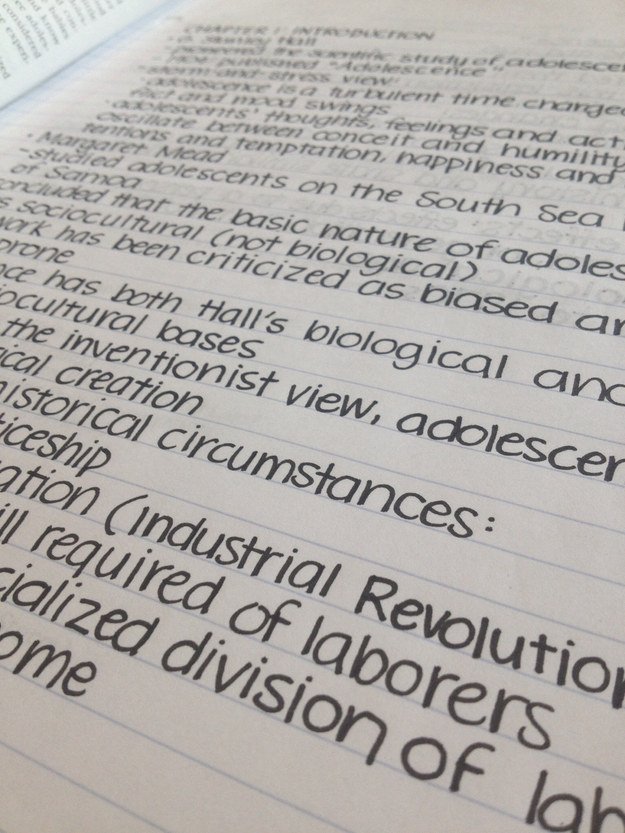 CHAPTER 1: INTRODUCTION
· G. Stanley Hall
- pioneered the scientific study of adolescen
- 1904: published "Adolescence"
- storm-and-stress view
· adolescence is a turbulent time charged
and mood swings
· adolescents' thoughts, feelings and acti
oscillate between conceit and humility
tentions and temptation, happiness and
· Margaret Mead
- studied adolescents on the South Sea I
of Samoa
oncluded that the basic nature of adoles
s sociocultural (not biological)
work has been criticized as biased an
prone
nce has both Hall's biological and
iocultural bases
the inventionist view, adolescen
ical creation
historical circumstances:
ticeship
ation (Industrial Revolution
ill required of laborers
cialized division of lab
ome